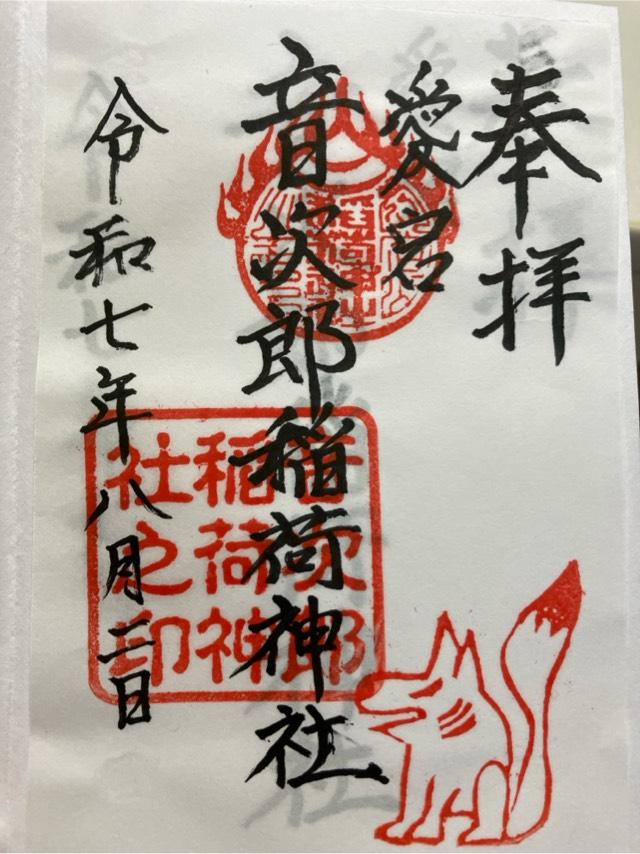 奉拝
愛宮
音次郎稲荷神社
令和七年八月二日
音次郎
稲荷神
社之印